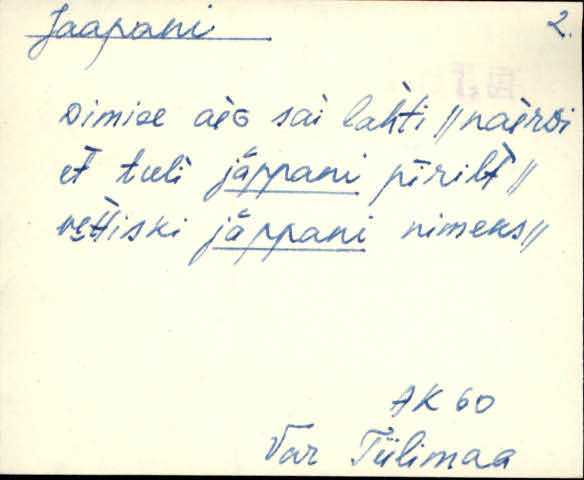 Jaapani 2.
viimise aiG sai lahti // nairsi
et tuli jäppani pirilt //
vettiski jäppani nimeks //
AK 60
Var Tiilimaa